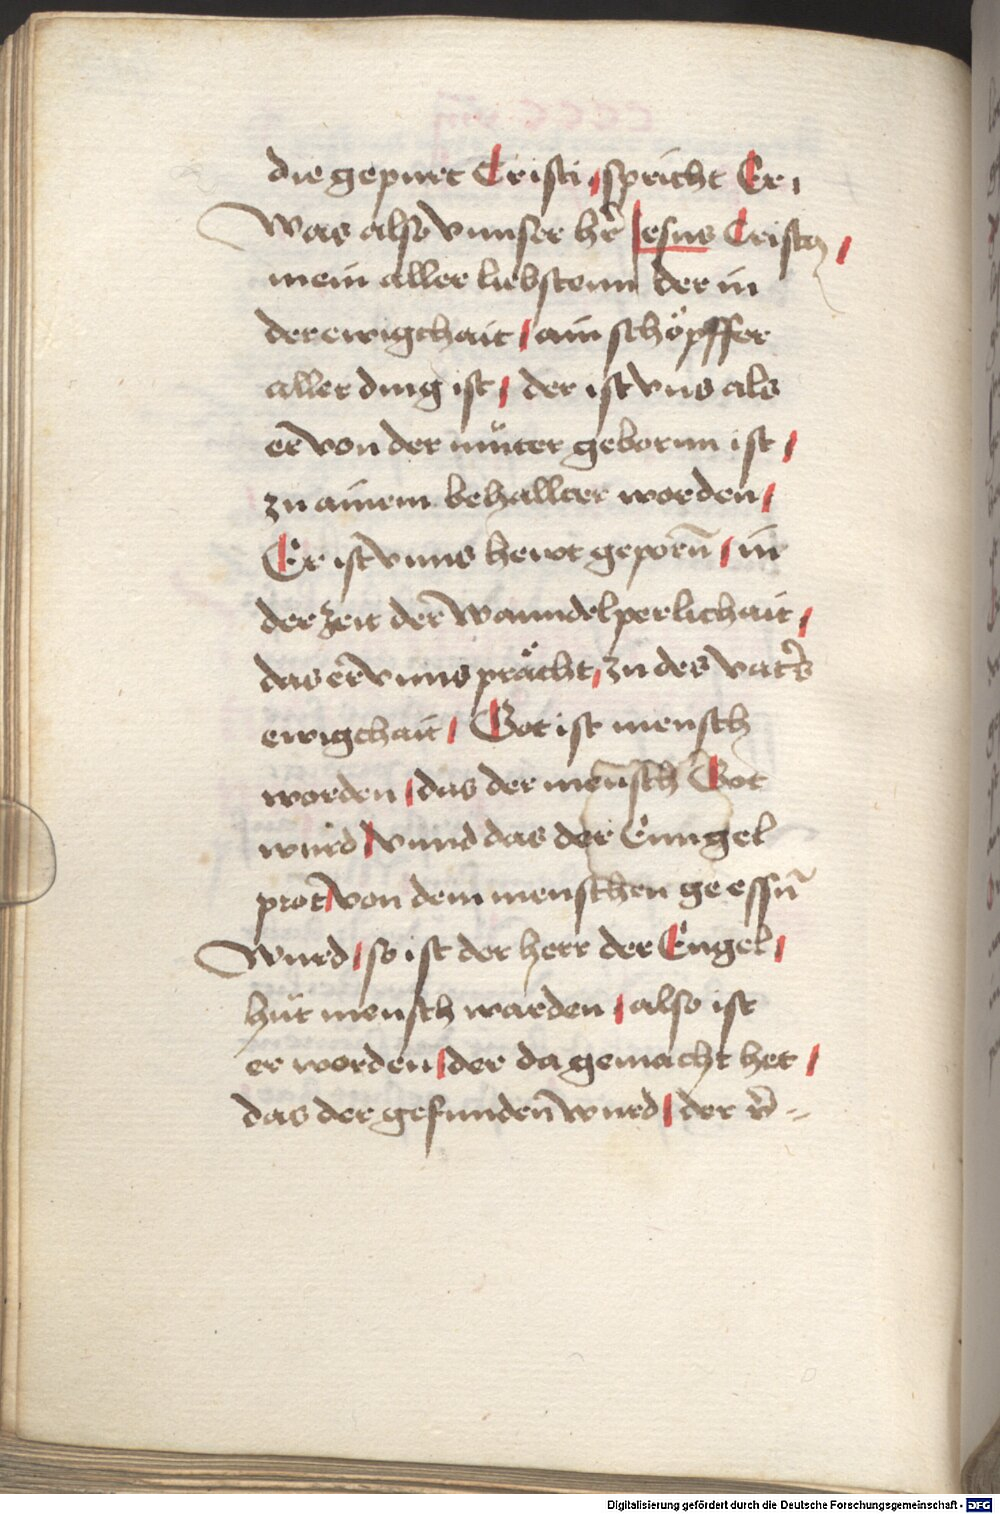 die gepurt Cristi / spricht Er /
Was also vnnser hr̄ Jesus Cristq /
mein aller liebstenn der in
der ewigchait / ain schöpffer
aller ding ist / der ist vns als
er von der můter gebornn ist /
zu ainem behallter worden /
Er ist vnns hewt geporn̄ / in
der zeit der wanndelperlichait /
das er vnns prächt / zu des vat's
ewigchait / Got ist mensch
worden / das der mensch Got
wurd / vnnd das der Enngel
prot / von dem menschen geessn̄
Wurd / so ist der herr der Engel /
hüt mensch warden / also ist
er worden / der da gemacht het /
das der gefunden wurd / der v̄ =
Digitalisierung gefördert durch die Deutsche Forschungsgemeinschaft - DFG